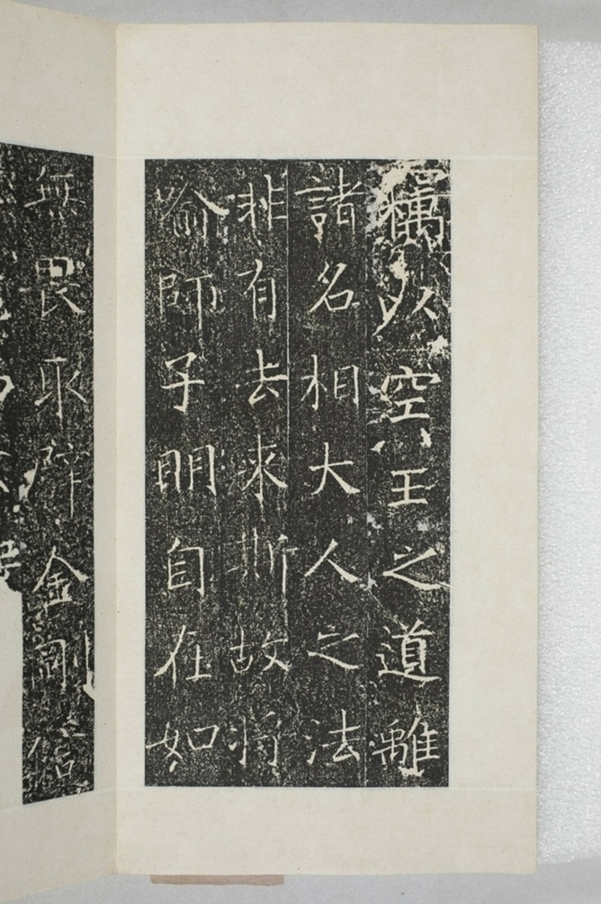 以空王之道離
諸名相大人之法
非有去來斯故將
喻師子明自在如
無畏取辟金剛信